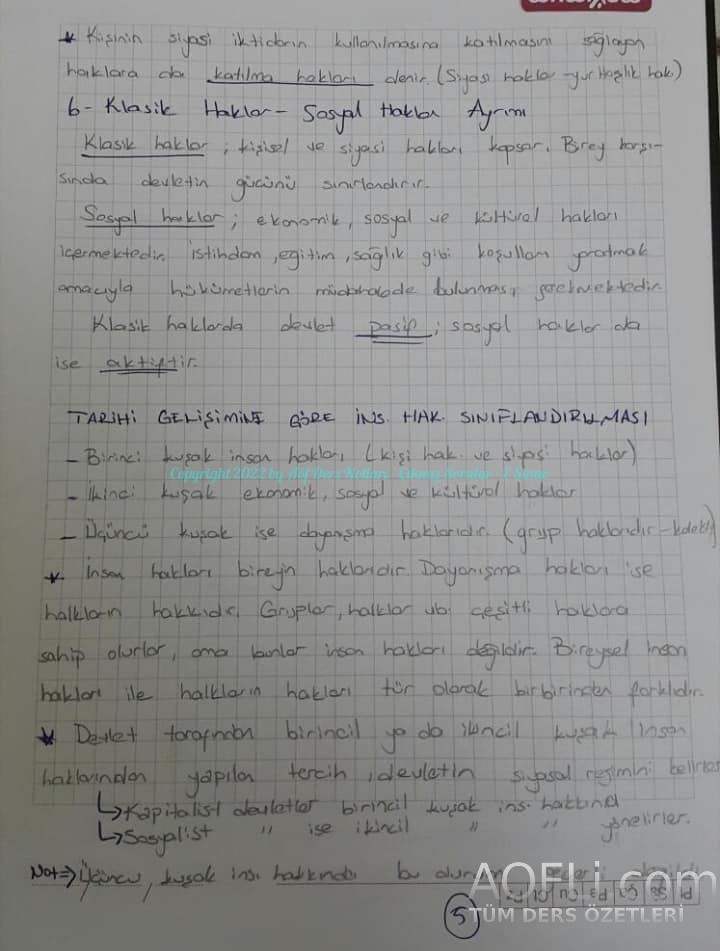 * Kişinin siyasi iktidarın kullanılmasına katılmasını sağlayan
haklara da katılma hakları denir. (Siyasi haklar - yurttaşlık hakı)
b- Klasik Haklar - Sosyal Haklar Ayrımı
Klasik haklar ; kişisel ve siyasi hakları kapsar. Birey karşı-
sında devletin gücünü sınırlandırır.
Sosyal haklar ; ekonomik, sosyal ve kültürel hakları
içermektedir. istihdam, eğitim, sağlık gibi koşulları yaratmak
amacıyla hükümetlerin müdahalede bulunması gerekmektedir.
Klasik haklarda devlet pasif ; sosyal haklar da
ise aktiftir.
TARİHİ GELİŞİMİNE GÖRE İNS. HAK. SINIFLANDIRILMASI
- Birinci kuşak insan hakları (kişi hak. ve siyasi haklar)
Copyright 2022 by Aöf Ders Notları
- İkinci kuşak ekonomik, sosyal ve kültürel haklar
- Üçüncü kuşak ise dayanışma haklarıdır. (grup haklarıdır
* İnsan hakları bireyin haklarıdır. Dayanışma hakları ise
halkların hakkıdır. Gruplar, halklar vb. çeşitli haklara
sahip olurlar, ama bunlar insan hakları değildir. Bireysel insan
hakları ile halkların hakları tür olarak birbirinden farklıdır.
* Devlet tarafından birincil ya da ikincil kuşak insan
haklarından yapılan tercih, devletin siyasal rejimini belirler
↳ Kapitalist devletler birincil kuşak ins. hakkına
↳ Sosyalist " ise ikincil " " yönelirler.
Not ⇒ Üçüncü kuşak ins. hakkında bu durum
5
AOFLi.com
TÜM DERS ÖZETLERİ